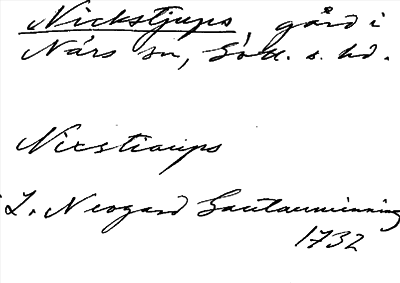 Nickstjups, gård i
Närs sn, Gotl. s. hd.
Nixstiaups
L. Neogard Gautauminning
1732